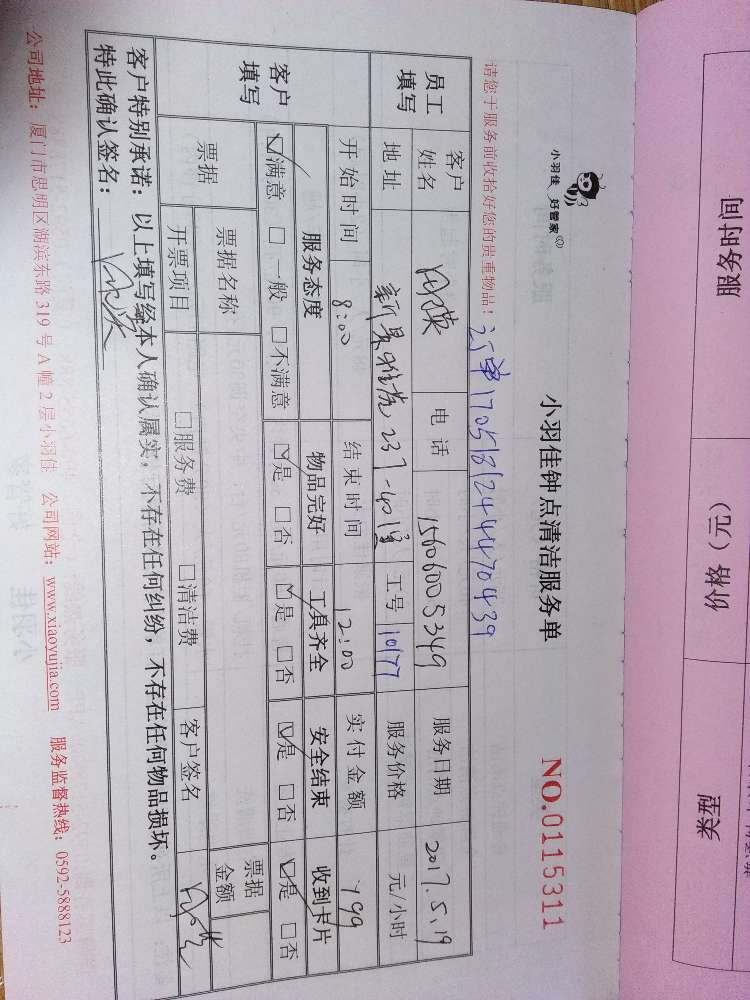 小羽佳 好管家
小羽佳钟点清洁服务单
NO.0115311
请您于服务前收拾好您的贵重物品!
订单1705181244470439
员工填写 客户姓名 电话 15606005349 服务日期 2017.5.19
地址 新景雅苑 237-401室 工号 10177 服务价格 元/小时
客户填写 开始时间 8:00 结束时间 12:00 实付金额 199
服务态度 物品完好 工具齐全 安全结束 收到卡片
☑满意 □一般 □不满意 ☑是 □否 ☑是 □否 ☑是 □否 ☑是 □否
票据 票据名称 票据金额
开票项目 □服务费 □清洁费 客户签名
客户特别承诺:以上填写经本人确认属实,不存在任何纠纷,不存在任何物品损坏。
特此确认签名:
公司地址:厦门市思明区湖滨东路319号A幢2层小羽佳 公司网站:www.xiaoyujia.com 服务监督热线:0592-5888123
服务时间
价格(元)
类型